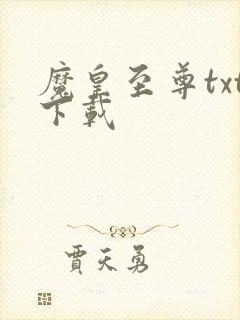 魔皇至尊txt
下载
贾天勇